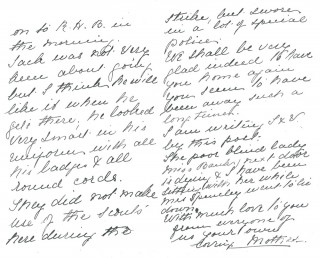 on to R.H.B. in
the morning.
Jack was not very
keen about going
but I think he will
like it when he
gets there, he looked
very smart in his
uniform with all
his badges & all
round cords.
They did not make
use of the scouts
here during the
strike, but swore
in a lot of special
police.
We shall be very
glad indeed to have
you home again
you seem to have
been away such a
long time.
I am writing
by this post.
The poor blind lady
Miss next door
is dying & I have been
sitting with her while
Miss went to lie
down.
With much love to you
from everyone of
us your loving
Mother.